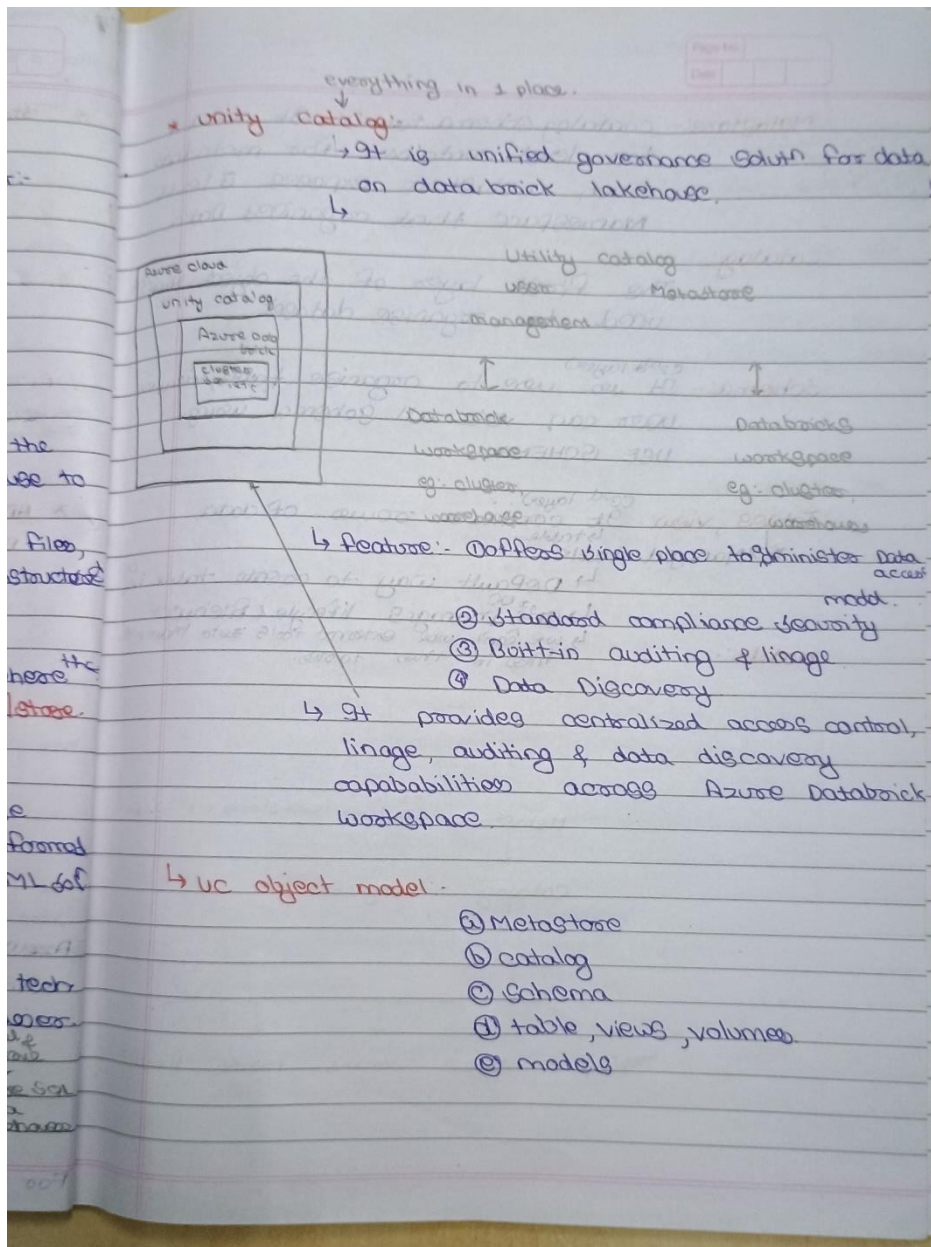 Page No
Date
everything in 1 place.
* unity catalog:-
↳ It is unified governance solutn for data
on databrick lakehouse.
↳
Azure cloud
unity catalog
Azure Data
brick
cluster
Utility catalog
user Metastore
management
↕ ↕
Databrick Databricks
workspace workspace
eg:- cluster eg:- cluster,
warehouse warehouse
↳ feature:- ① offers single place to administer Data
access
model.
② Standard compliance security
③ Boitt-in auditing & linage
④ Data Discovery
↳ It provides centralized access control,
linage, auditing & data discovery
capababilities across Azure Databrick
workspace.
↳ UC object model -
ⓐ Metastore
ⓑ catalog
ⓒ Schema
ⓓ table, views, volumes
ⓔ models
the
use to
files,
structured
the
here
store.
e
formed
ML
tech